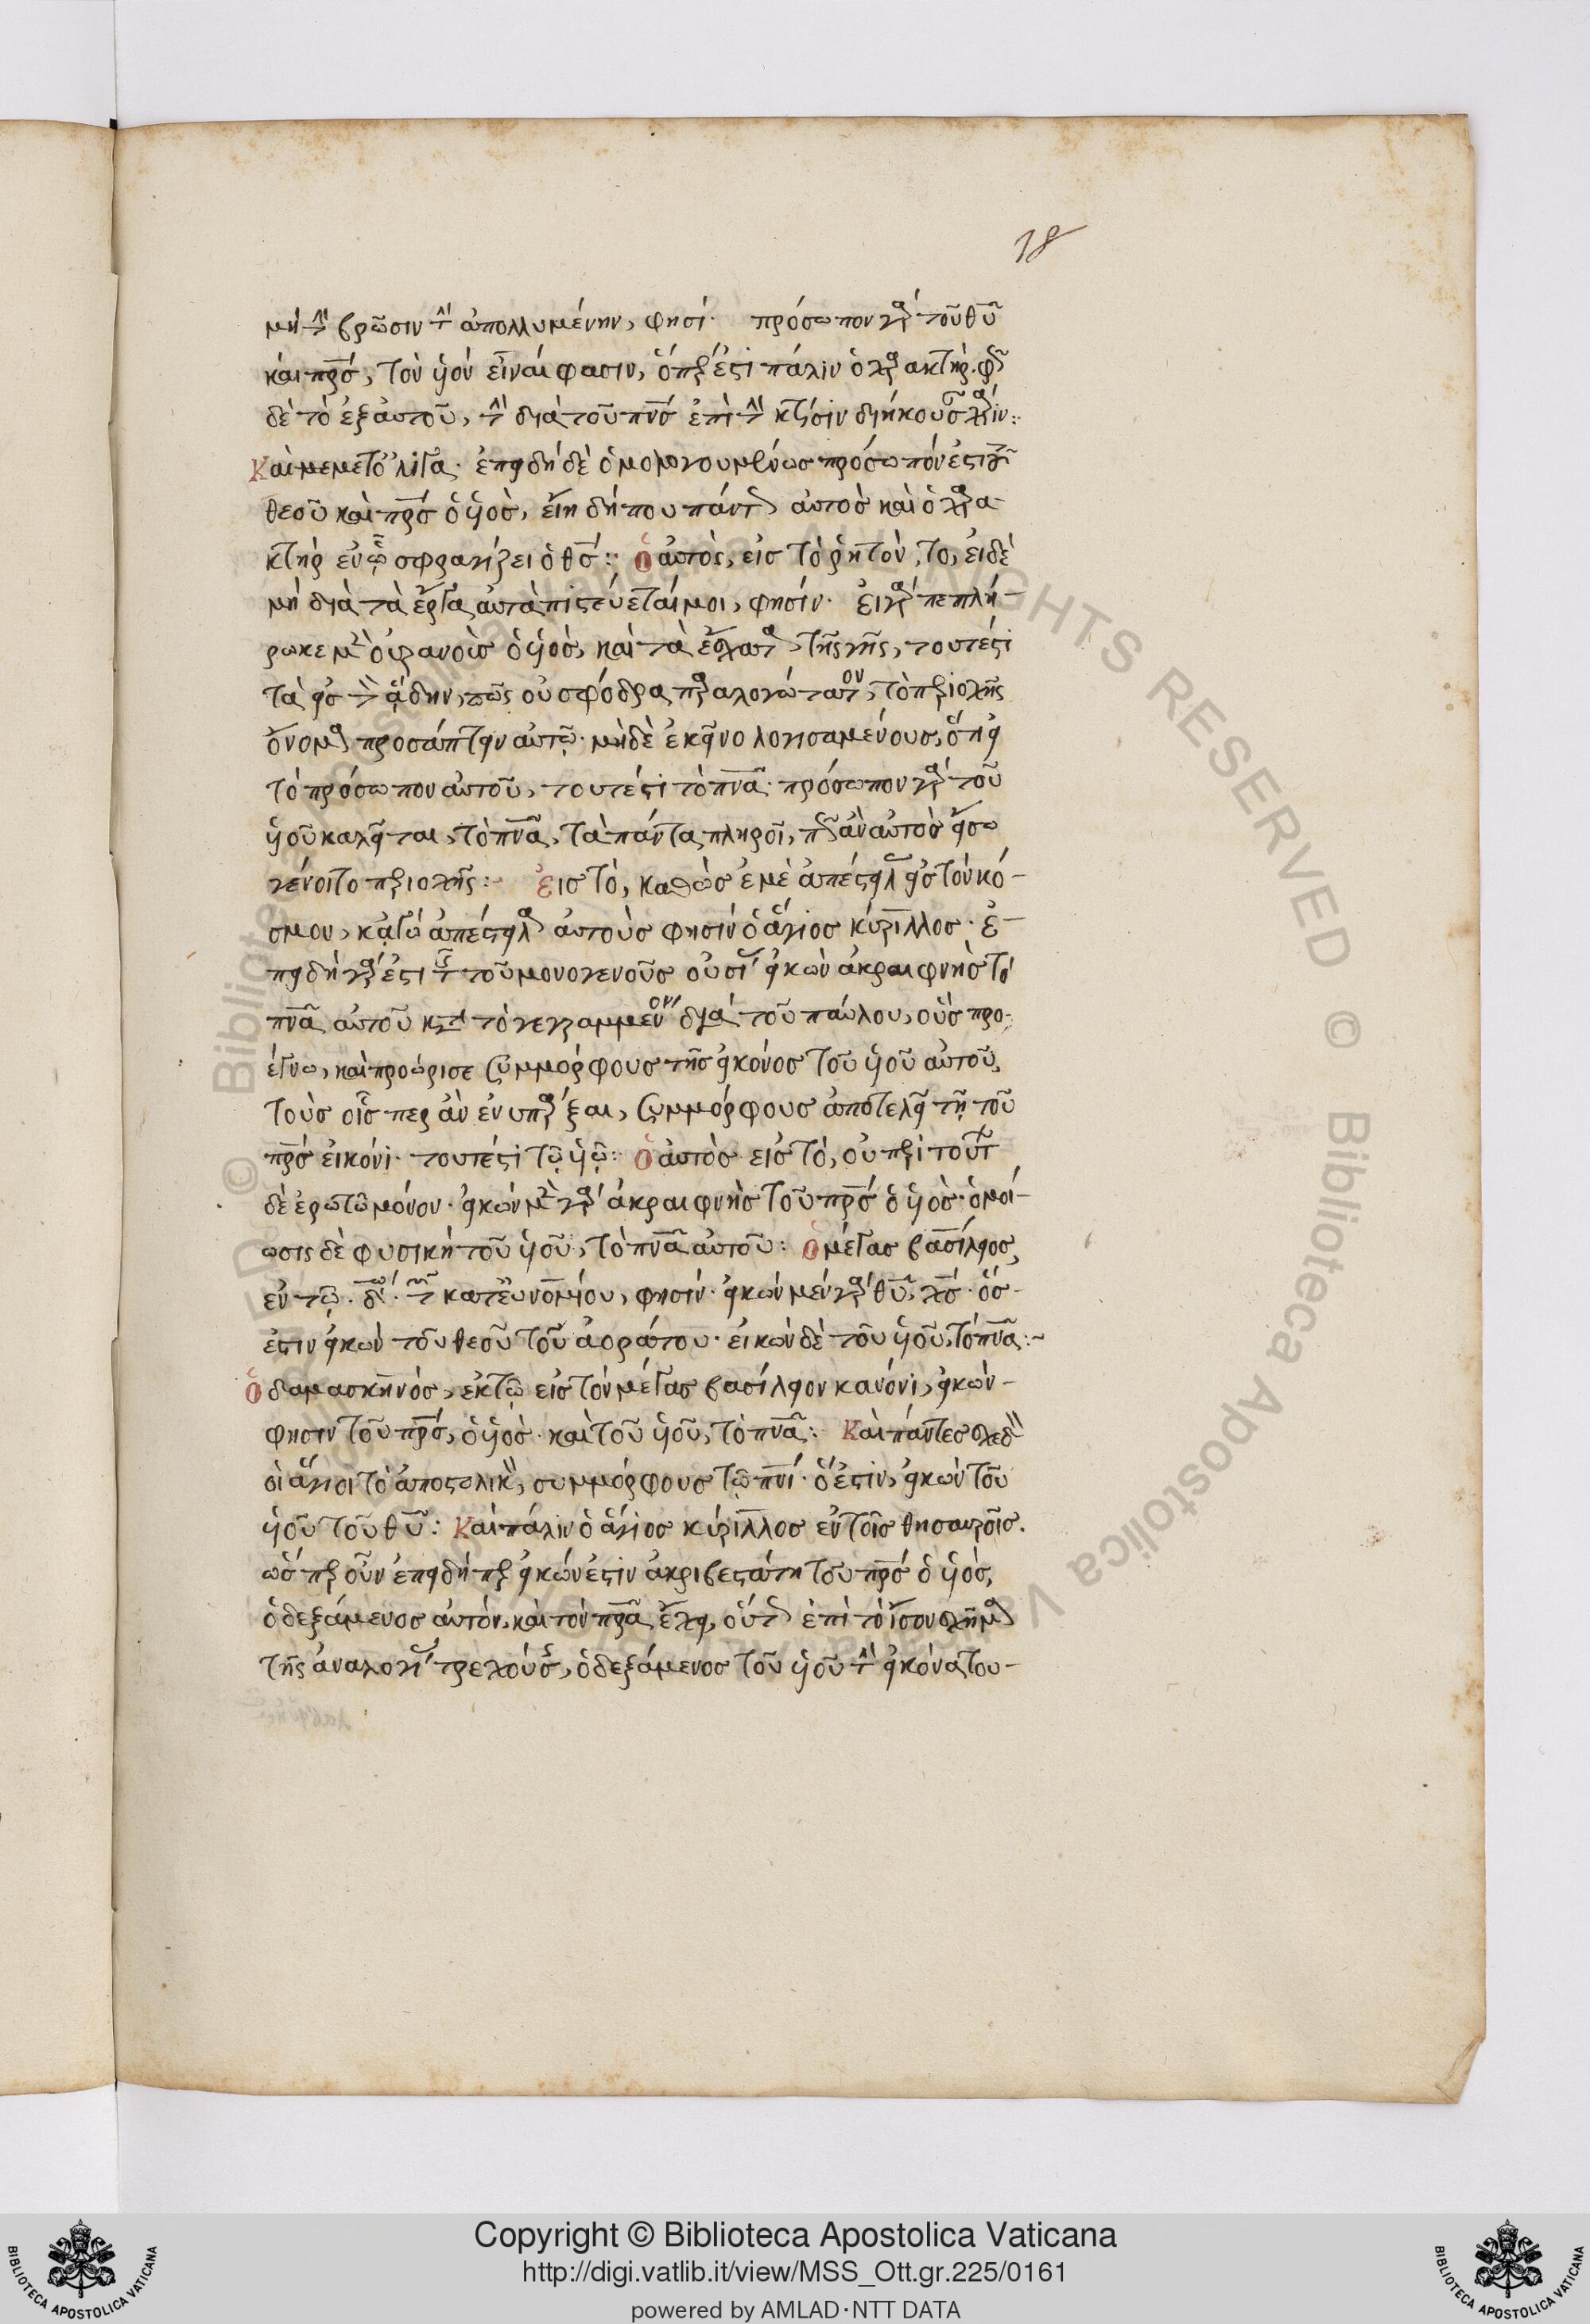 18
μὴ τὴν βρῶσιν τὴν ἀπολλυμένην, φησί· πρόσωπον γὰρ τοῦ θῦ
καὶ πρσ, τὸν ὑὸν εἶναί φασιν, ὅπερ ἐστὶ πάλιν ὁ χαρακτήρ. φῶς
δὲ τὸ ἐξ αὐτοῦ, τὴν διὰ τοῦ πνσ ἐπὶ τὴν κτίσιν διήκουσαν χάριν:
Καὶ μεμετ' ὀλίγα· ἐπειδὴ δὲ ὁμολογουμένως πρόσωπόν ἐστι τοῦ
θεοῦ καὶ πρσ ὁ ὑὸς, εἴη δήπου πάντως αὐτὸς καὶ ὁ χαρα-
κτὴρ ἐν ᾧ σφραγίζει ὁ θσ: ὁ αὐτὸς, εἰς τὸ ῥητὸν, το, εἰ δὲ
μὴ διὰ τὰ ἔργα αὐτὰ πιστεύεταί μοι, φησίν· εἰ γὰρ πεπλή-
ρωκε μὲν οὐρανοὺς ὁ ὑὸς, καὶ τὰ ἔσχατα τῆς γῆς, τουτέστι
τὰ εἰς τὸν ᾅδην, πῶς οὐ σφόδρα παραλογώτατον, τὸ περιοχῆς
ὄνομα προσάπτειν αὐτῷ· μηδὲ ἐκεῖνο λογισαμένους, ὅτι εἰ
τὸ πρόσωπον αὐτοῦ, τουτέστι τὸ πνα· πρόσωπον γὰρ τοῦ
ὑοῦ καλεῖται, τὸ πνα, τὰ πάντα πληροῖ, πῶς ἂν αὐτὸς εἴσω
γένοιτο περιοχῆς: εἰς τὸ, καθὼς ἐμὲ ἀπέστειλας εἰς τὸν κό-
σμον, κἀγὼ ἀπέστειλα αὐτοὺς φησὶν ὁ ἅγιος κύριλλος· ἐ-
πειδὴ γάρ ἐστι τῆς τοῦ μονογενοῦς οὐσίας εἰκὼν ἀκραιφνὴς τὸ
πνα αὐτοῦ κατὰ τὸ γεγραμμένον διὰ τοῦ παύλου, οὓς προ-
έγνω, καὶ προώρισε συμμόρφους τῆς εἰκόνος τοῦ ὑοῦ αὐτοῦ,
τοὺς οἷς περ ἂν ἐνυπάρξαι, συμμόρφους ἀποτελεῖ τῇ τοῦ
πρσ εἰκόνι· τουτέστι τῷ ὑῷ: ὁ αὐτὸς εἰς τὸ, οὐ περὶ τούτων
δὲ ἐρωτῶ μόνον· εἰκὼν μὲν γὰρ ἀκραιφνὴς τοῦ πρσ ὁ ὑὸς· ὁμοί-
ωσις δὲ φυσικὴ τοῦ ὑοῦ, τὸ πνα αὐτοῦ: ὁ μέγας βασίλειος,
ἐν τῷ. δω. τῶν κατ' εὐνομίου, φησίν· εἰκὼν μὲν γὰρ θυ, χσ· ὅς
ἐστιν εἰκὼν τοῦ θεοῦ τοῦ ἀοράτου· εἰκὼν δὲ τοῦ ὑοῦ, τὸ πνα:
ὁ δαμασκηνὸς, ἐκ τῷ εἰς τὸν μέγας βασίλειον κανόνι, εἰκών
φησιν τοῦ πρσ, ὁ ὑὸς· καὶ τοῦ ὑοῦ, τὸ πνα: Καὶ πάντες σχεδὸν
οἱ ἅγιοι τὸ ἀποστολικὸν, συμμόρφους τῷ πνι· ὅ ἐστιν, εἰκὼν τοῦ
ὑοῦ τοῦ θυ: Καὶ πάλιν ὁ ἅγιος κύριλλος ἐν τοῖς θησαυροῖς.
ὥσπερ οὖν ἐπειδήπερ εἰκών ἐστιν ἀκριβεστάτη τοῦ πρσ ὁ ὑὸς,
ὁ δεξάμενος αὐτὸν, καὶ τὸν πρα ἔχει, οὕτως ἐπὶ τὸ ἴσον σχῆμα
τῆς ἀναλογίας τρεχούσης, ὁ δεξάμενος τοῦ ὑοῦ τὴν εἰκόνα του-
Copyright © Biblioteca Apostolica Vaticana
http://digi.vatlib.it/view/MSS_Ott.gr.225/0161
powered by AMLAD·NTT DATA
BIBLIOTECA APOSTOLICA VATICANA
BIBLIOTECA APOSTOLICA VATICANA